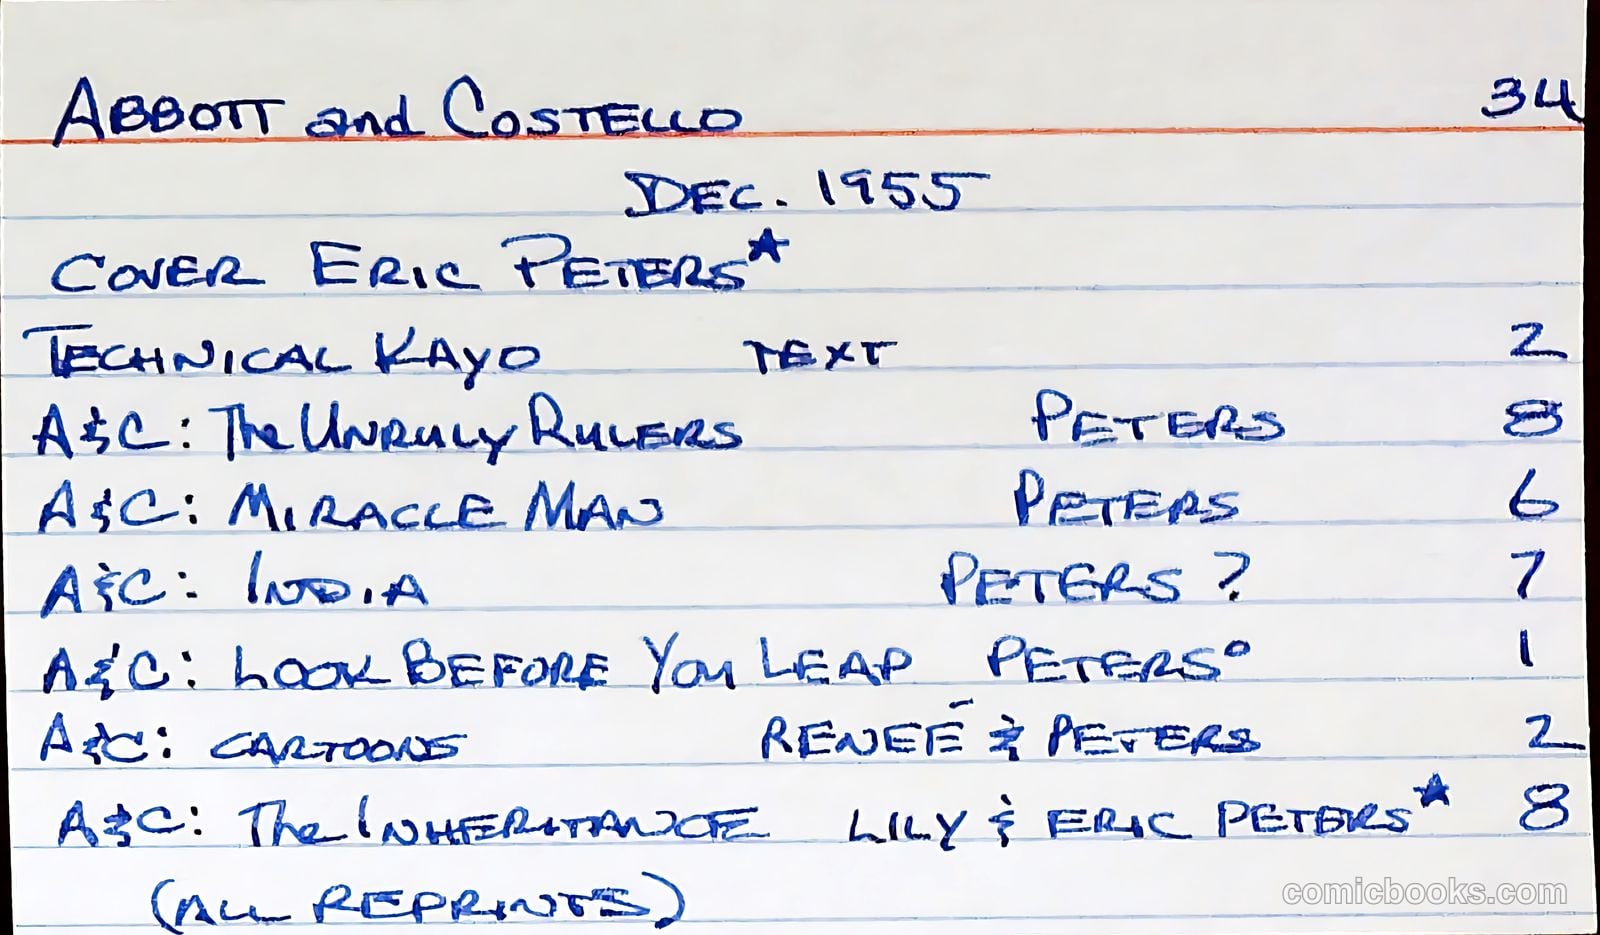 ABBOTT and COSTELLO 34
DEC. 1955
COVER ERIC PETERS★
TECHNICAL KAYO TEXT 2
A&C: The UNRULY RULERS PETERS 8
A&C: MIRACLE MAN PETERS 6
A&C: INDIA PETERS ? 7
A&C: LOOK BEFORE YOU LEAP PETERS° 1
A&C: CARTOONS RENEÉ & PETERS 2
A&C: The INHERITANCE LILY & ERIC PETERS★ 8
(ALL REPRINTS)
comicbooks.com